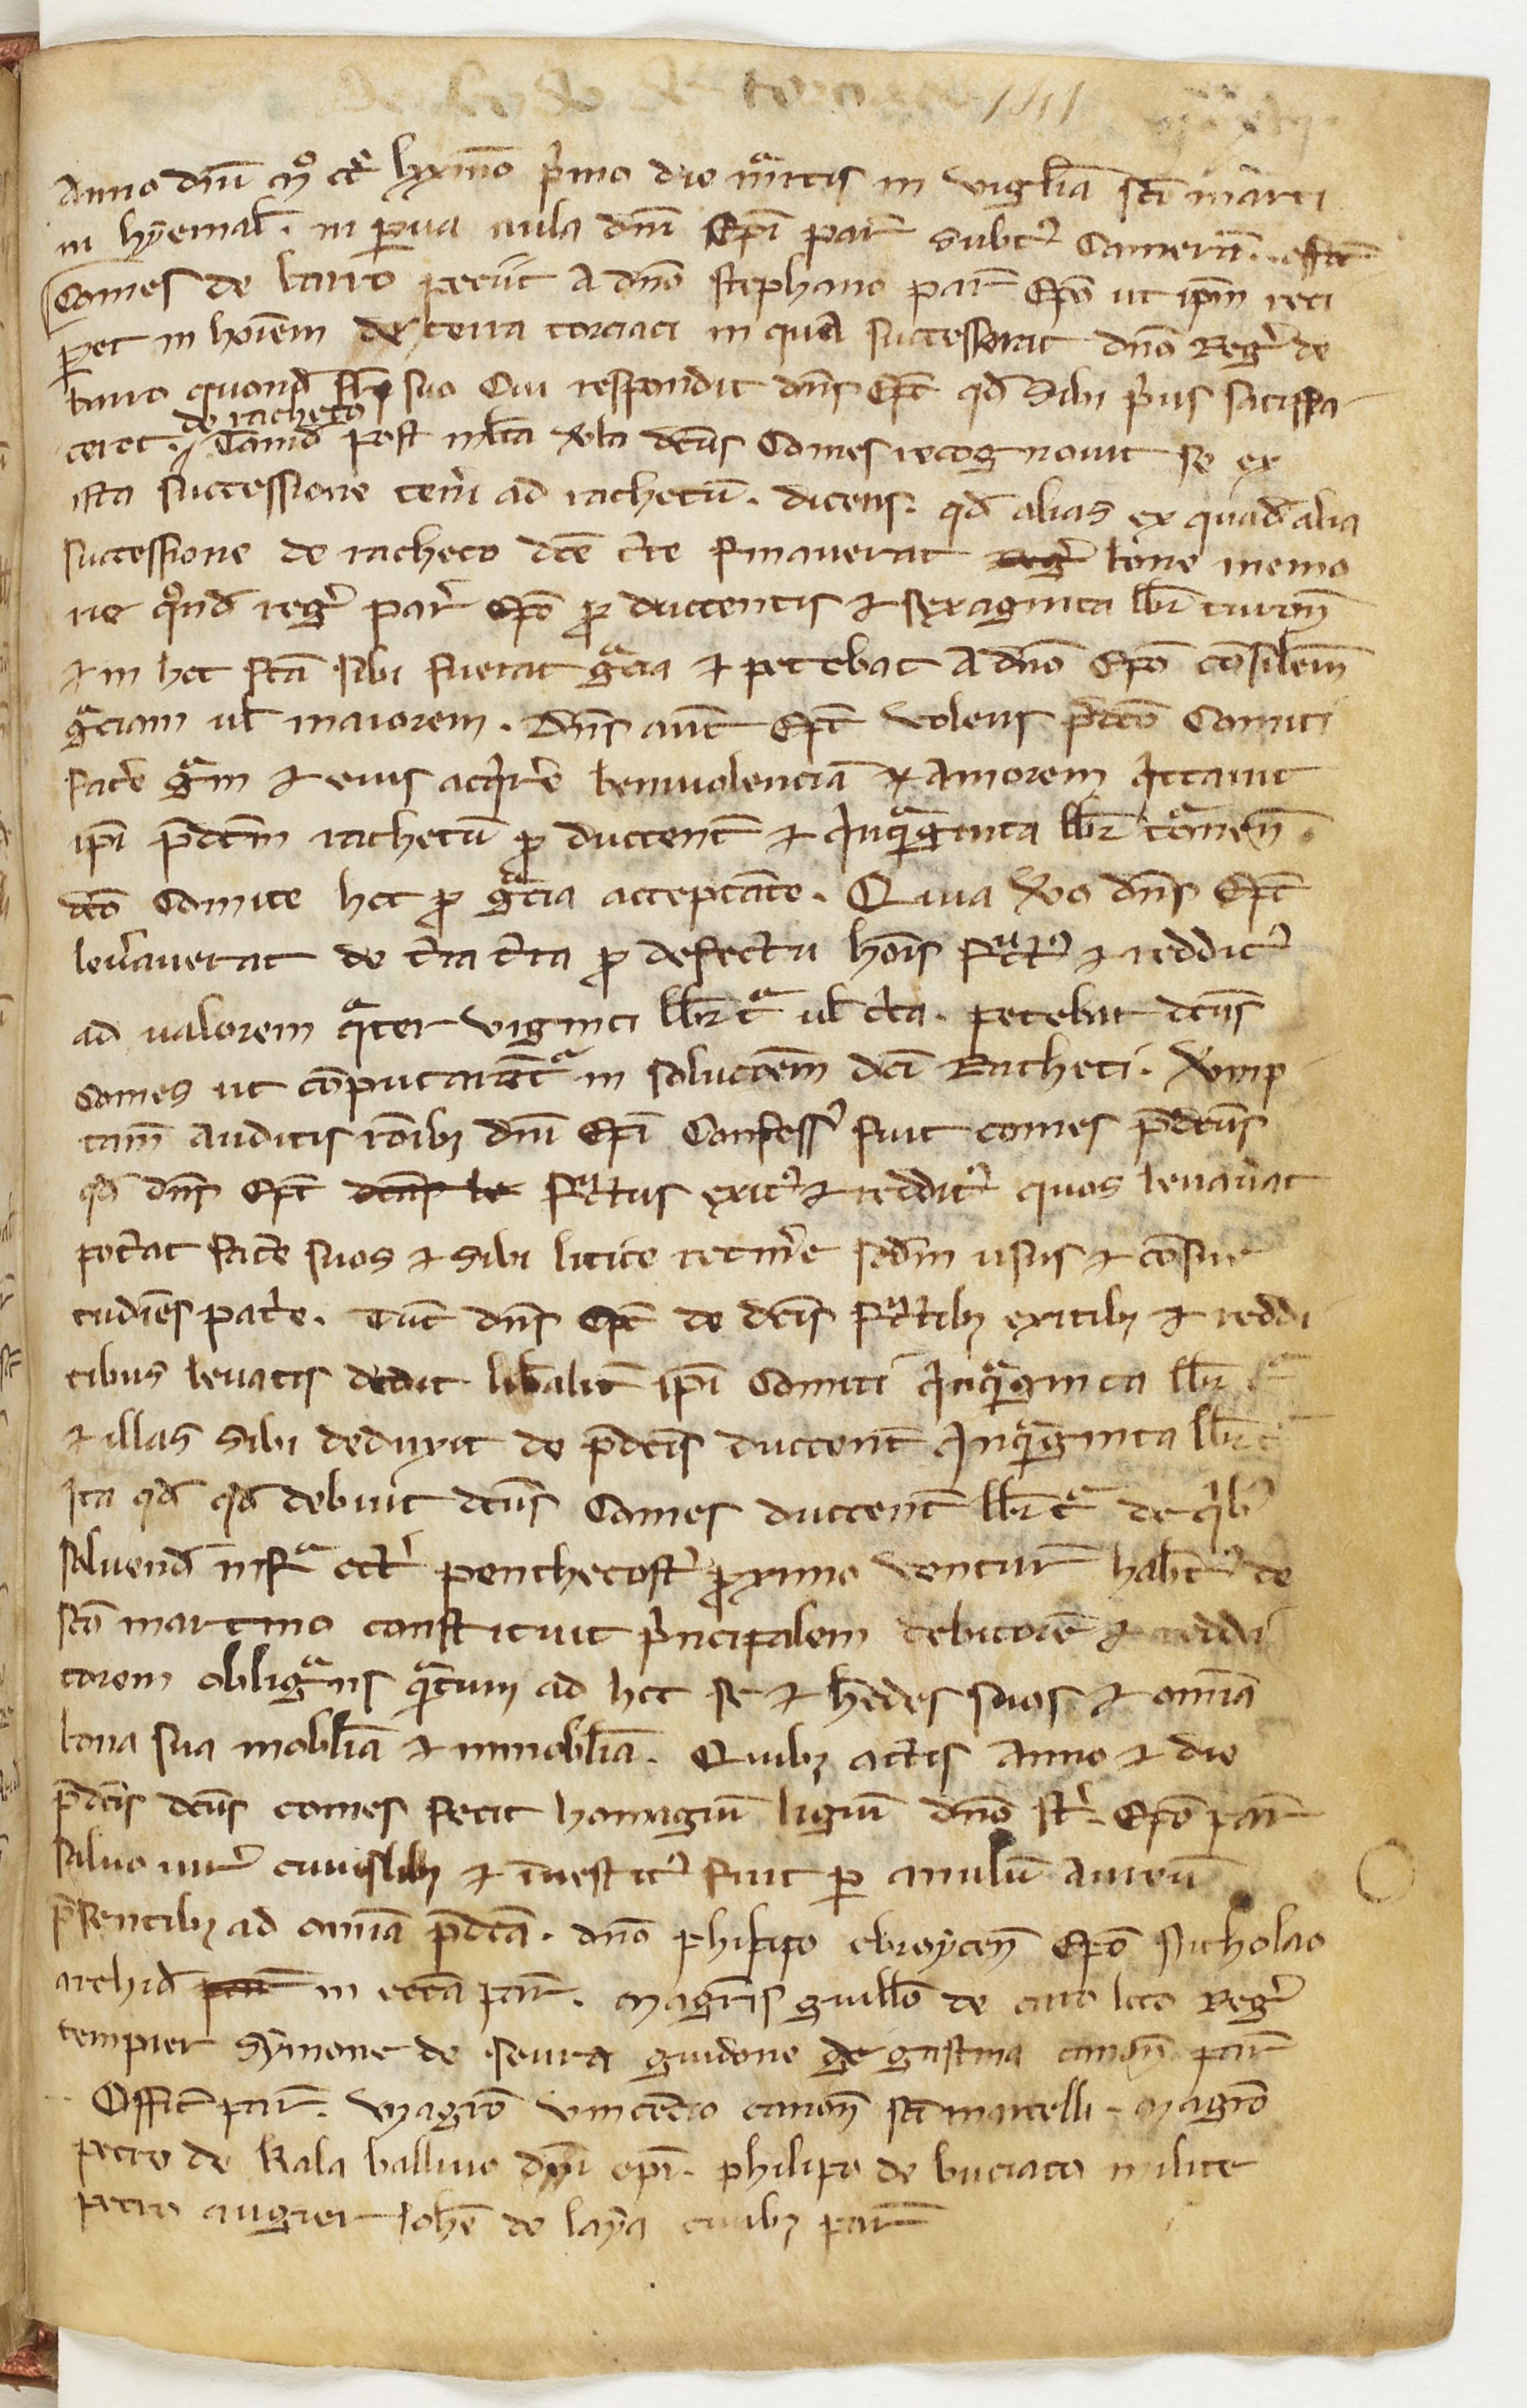 Anno dnī mº ccº lxxmo p̍mo die mᵃrtis in vigilia sc̄i marci
in hyemal̄. in p̱ua aula dnī Ep̄i par̄ subt᾽ Camerā..
Comes de barro peciit A dn̄o stephano par̄ Ep̄o ut ip̄m reci
p̱et in hoīem de terra torciaci in qua successerat dn̄o Reg̍ de
barro quond̄ fr̄i suo Cui respondit dn̄s Ep̄c qd̄ Sibi p̍us satisfa
ceret. de racheto Tamd̄ post ml̄ta v̄ba dc̄us Comes recognovit se ex
ista successione teneri ad rachetū. dicens. qd̄ alias ex quad̄ alia
successione de racheto dc̄e t̄re finaverat bone memo
rie qᵒnd̄ reg̍ par̍ Ep̄o p̱ ducentis ⁊ sexaginta lbr̄ turon̄
⁊ in hoc fc̄a sibi fuerat gᵃcia ⁊ petebat A dn̄o Ep̄o consilem̄
gᵃciam ul̄ maiorem. Dn̄s aut̄ Ep̄c volens p̄dc̄o Comiti
fac̄e gᵃm ⁊ eius acq̍r̄e benivolenciā ⁊ Amorem q̍ttavit
ip̄i p̄dc̄m rachetū p̱ ducent̄ ⁊ q̍nqᵃginta lbr̄
dc̄o Comite hoc p̱ gᵃcia acceptante. Quia v̄o dn̄s Ep̄c
levaverat de dc̄a t̄ra p̱ defectu hoīs fruct᾽ ⁊ reddit᾽
ad valorem qᵃter viginti lbr̄ tᵃ ul̄ c̄ca. petebat dc̄us
Comes ut cōputarent᾽ in soluc̄oem dc̄i Racheti. V̄ūmp
tam̄ auditis rōnibȝ dnī Ep̄i Confess᾽ fuit comes p̄dc̄us
qd̄ dn̄s Ep̄c fructus exit᾽ ⁊ reddit᾽ quos levav̄at
pot̄at fac̄e suos ⁊ Sibi licite retin̄e sc̄dm usus ⁊ consue
tudiēs patr̄e. Tūc dn̄s Ep̄c de dc̄is fructibȝ exitibȝ ⁊ reddi
tibus levatis dedit lib̄alit̄ ip̄i Comiti q̍nqᵃginta lbr̄ tᵃ
⁊ illas Sibi deduxit de p̄dc̄is ducent̄ q̍nqᵃginta lbr̄ t
Ita qd̄ qd̄ debuit dc̄us Comes ducent̄ lbr̄ tᵃ de q̍b᾽
solvend̄ infᵃ oct̍ penthecost̍ p̱ximo ventur̄ de
sc̄o martino constituit p̍ncipalem debitorē ⁊ reddi
torem obligᵃns qᵃntum ad hoc se ⁊ h̄edes suos ⁊ omīa
bona sua mobilīa ⁊ inmobilīa. Quibȝ actis Anno ⁊ die
p̄dc̄is dc̄us comes fecit homagiū ligiū dn̄o st̍. Ep̄o par̄
salvo iure cuiuslibȝ ⁊ īvestit᾽ fuit p̱ anulū Aureū
p̄sentibȝ ad omīa p̄dc̄a. dn̄o philipo ebroycen̄ Ep̄o Nicholao
archid̄ in ecc̄a par̄. Magr̄is guillo̅ de Reg̍
tempier Symone de guidone de gastina canon̄ par̄
Offic̄ par̄. Magrō vincentio canon̄ sc̄i marcelli. Magrō
petro de kala ballivo dnī ep̄i. philipo de buciaco milite
petro augier Ioh̄e de laya civibȝ par̄